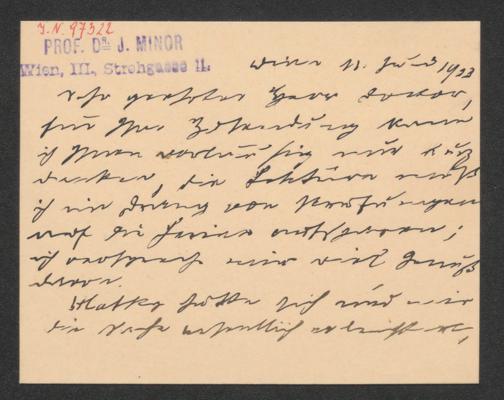 J. N. 97322
PROF. DR. J. MINOR
Wien, III., Strohgasse 11.
Wien 11. Juni 1903
Sehr geehrter Herr Doctor,
für Ihre Zusendung kann
ich Ihnen vorläufig nur kurz
danken, die Lektüre muß
ich im Drang von Prüfungen
auf die Ferien aufsparen;
ich verspreche mir viel Genuß
davon.
hätte sich und mir
die Sache wesentlich erleichtert,